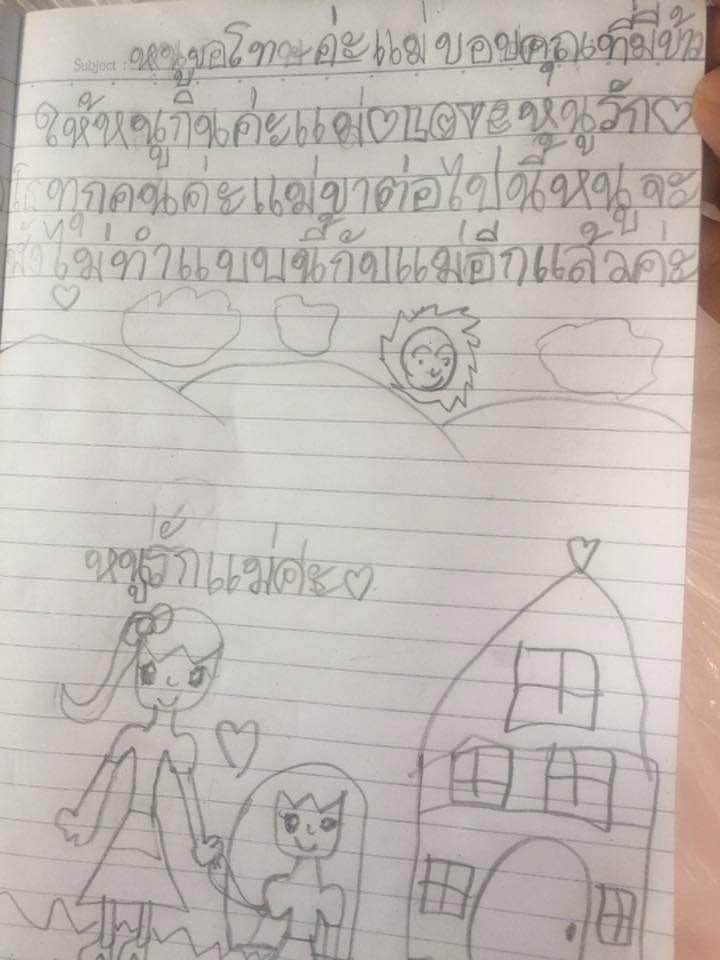 Subject : หนูขอโทษค่ะแม่ ขอบคุณที่มีข้าว
ให้หนูกินค่ะแม่♡ Love หนูรัก♡
ทุกคนค่ะแม่ขาต่อไปนี้หนูจะ
ไม่ทำแบบนี้กับแม่อีกแล้วค่ะ
หนูรักแม่ค่ะ♡